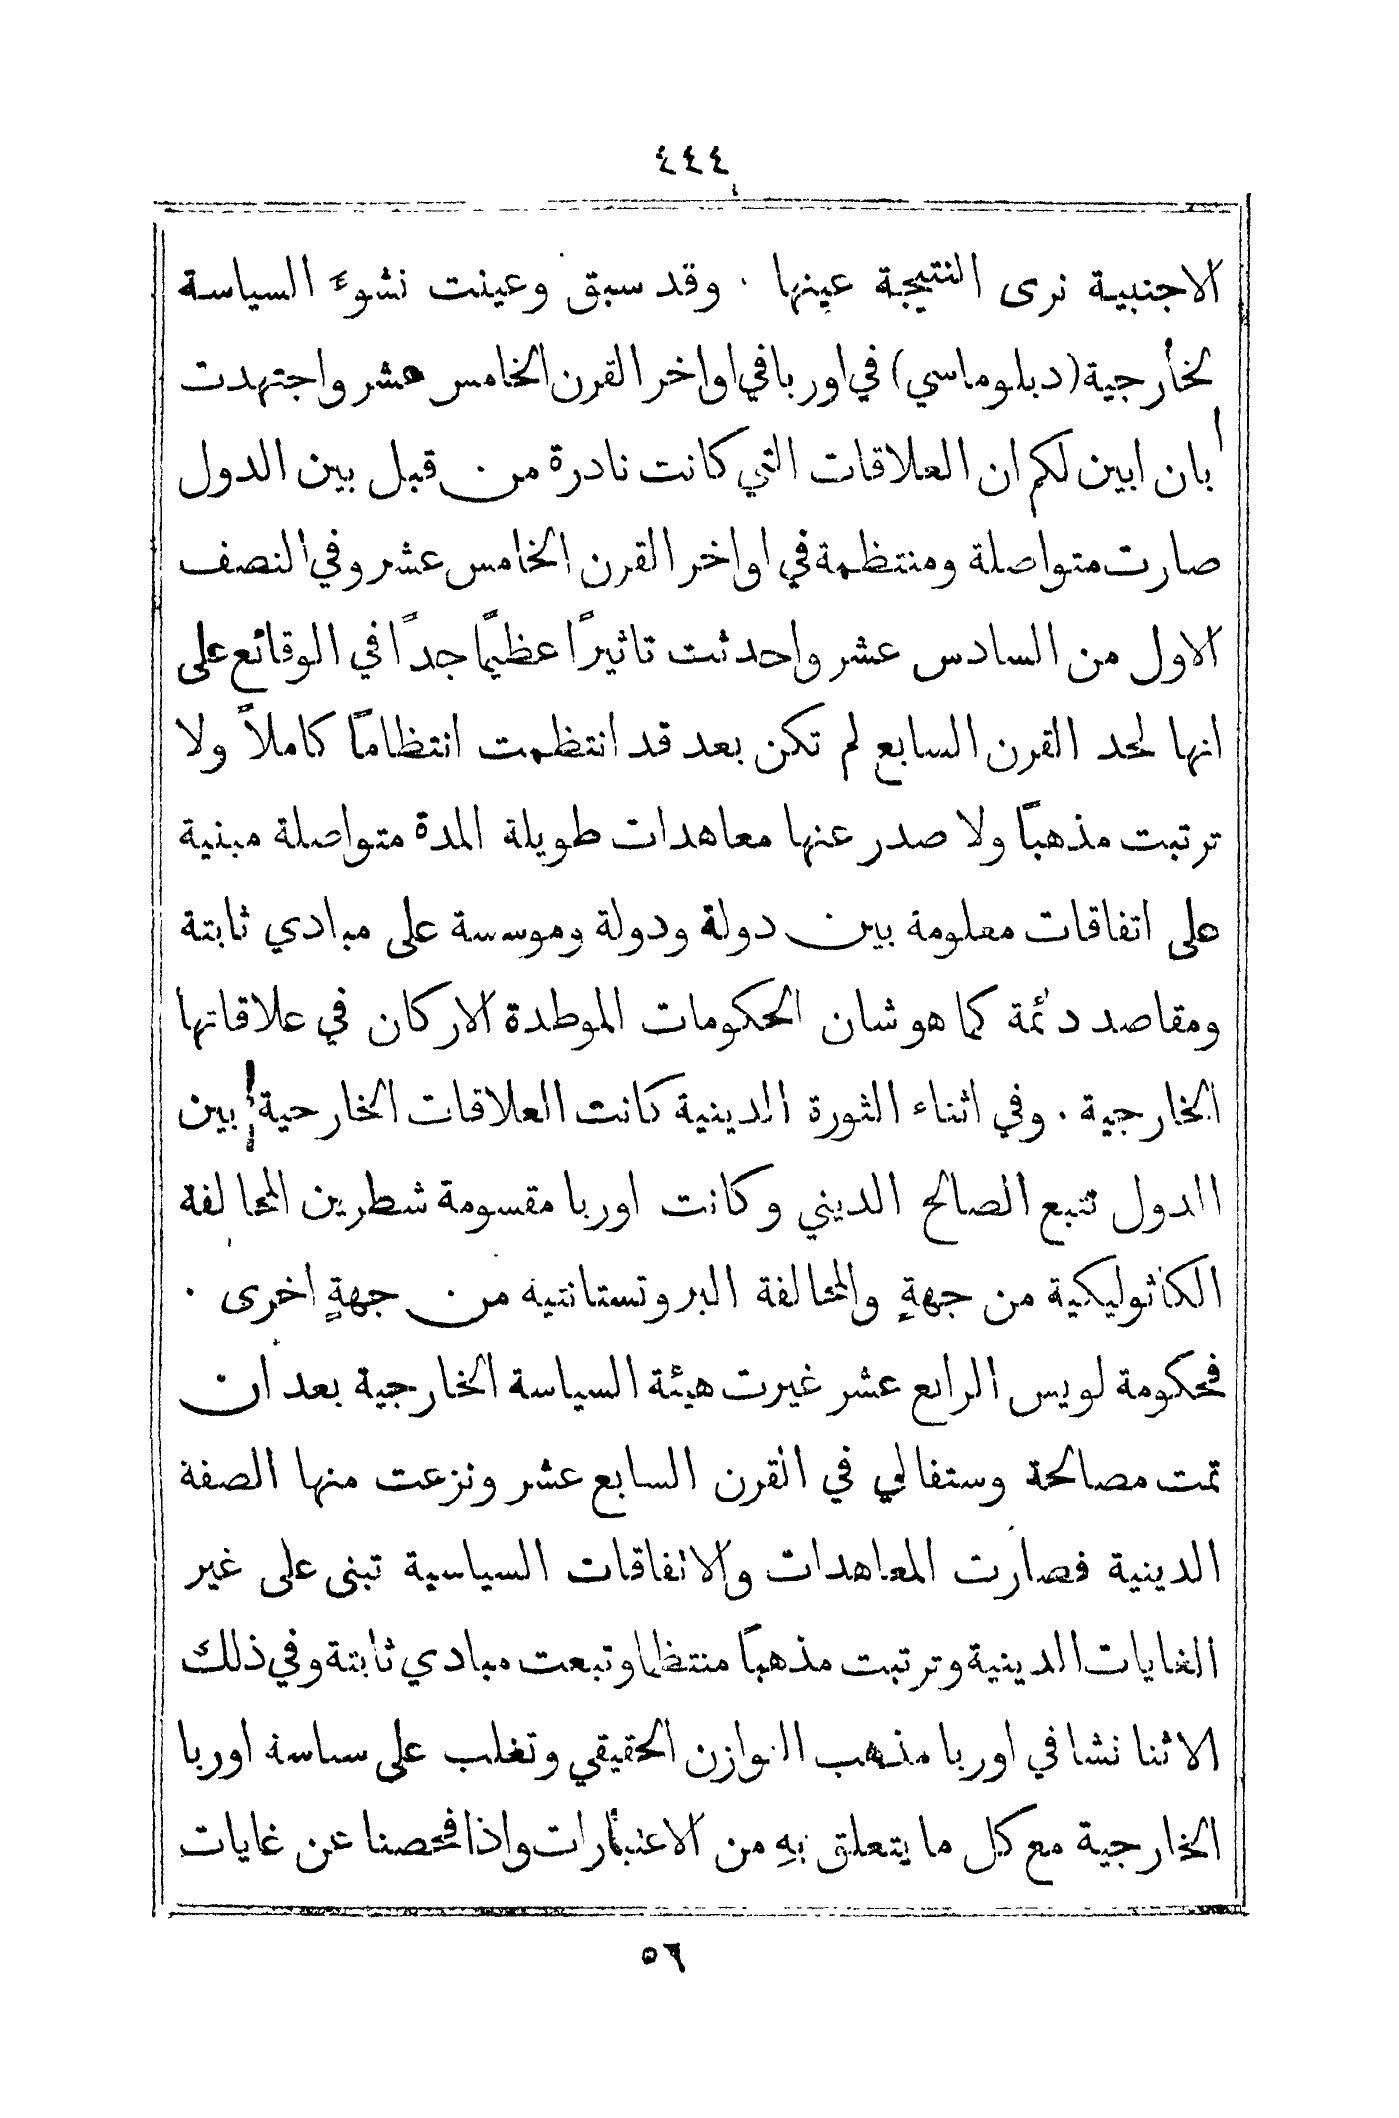 ٤٤٤
الاجنبية نرى النتيجة عينها . وقد سبق وعينت نشوء السياسة
الخارجية (دبلوماسي) في اوربا في اواخر القرن الخامس عشر واجتهدت
بان ابين لكم ان العلاقات التي كانت نادرة من قبل بين الدول
صارت متواصلة ومنتظمة في اواخر القرن الخامس عشر وفي النصف
الاول من السادس عشر واحدثت تاثيرًا عظيمًا جدًا في الوقائع على
انها لحد القرن السابع لم تكن بعد قد انتظمت انتظامًا كاملاً ولا
ترتبت مذهبًا ولا صدر عنها معاهدات طويلة المدة متواصلة مبنية
على اتفاقات معلومة بين دولة ودولة وموسسة على مبادي ثابتة
ومقاصد دائمة كما هو شان الحكومات الموطدة الاركان في علاقاتها
الخارجية . وفي اثناء الثورة الدينية كانت العلاقات الخارجية بين
الدول تتبع الصالح الديني وكانت اوربا مقسومة شطرين المحالفة
الكاثوليكية من جهةٍ والمحالفة البروتستانتيه من جهةٍ اخرى .
فحكومة لويس الرابع عشر غيرت هيئة السياسة الخارجية بعد ان
تمت مصالحة وستفالي في القرن السابع عشر ونزعت منها الصفة
الدينية فصارت المعاهدات والاتفاقات السياسية تبنى على غير
الغايات الدينية وترتبت مذهبًا منتظما وتبعت مبادي ثابتة وفي ذلك
الاثنا نشا في اوربا مذهب التوازن الحقيقي وتغلب على سياسة اوربا
الخارجية مع كل ما يتعلق بهِ من الاعتبارات واذا فحصنا عن غايات
٥٦